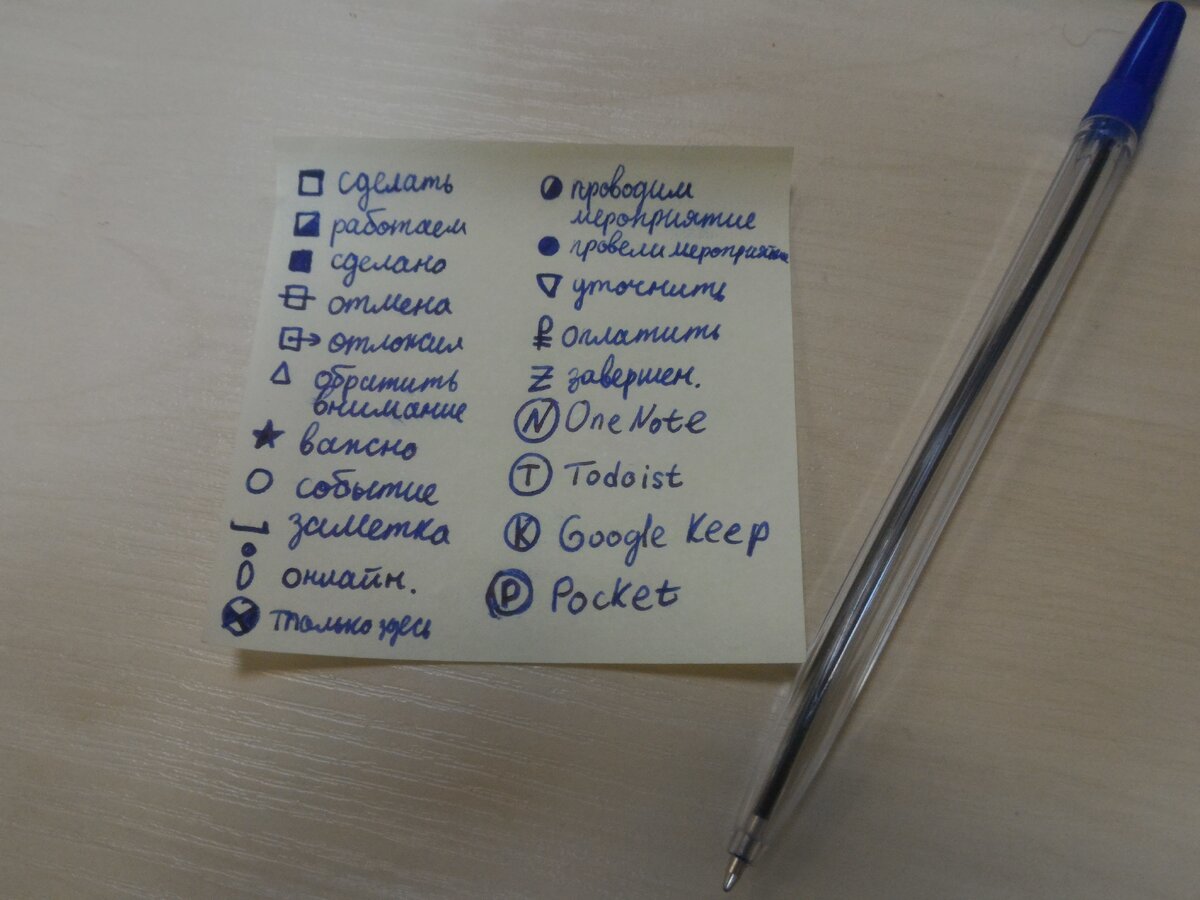 сделать
работаем
сделано
отмена
отложил
обратить
внимание
важно
событие
заметка
онлайн.
только здесь
проводим
мероприятие
провели мероприятие
уточнить
₽ оплатить
Z завершен.
N OneNote
T Todoist
K Google Keep
P Pocket